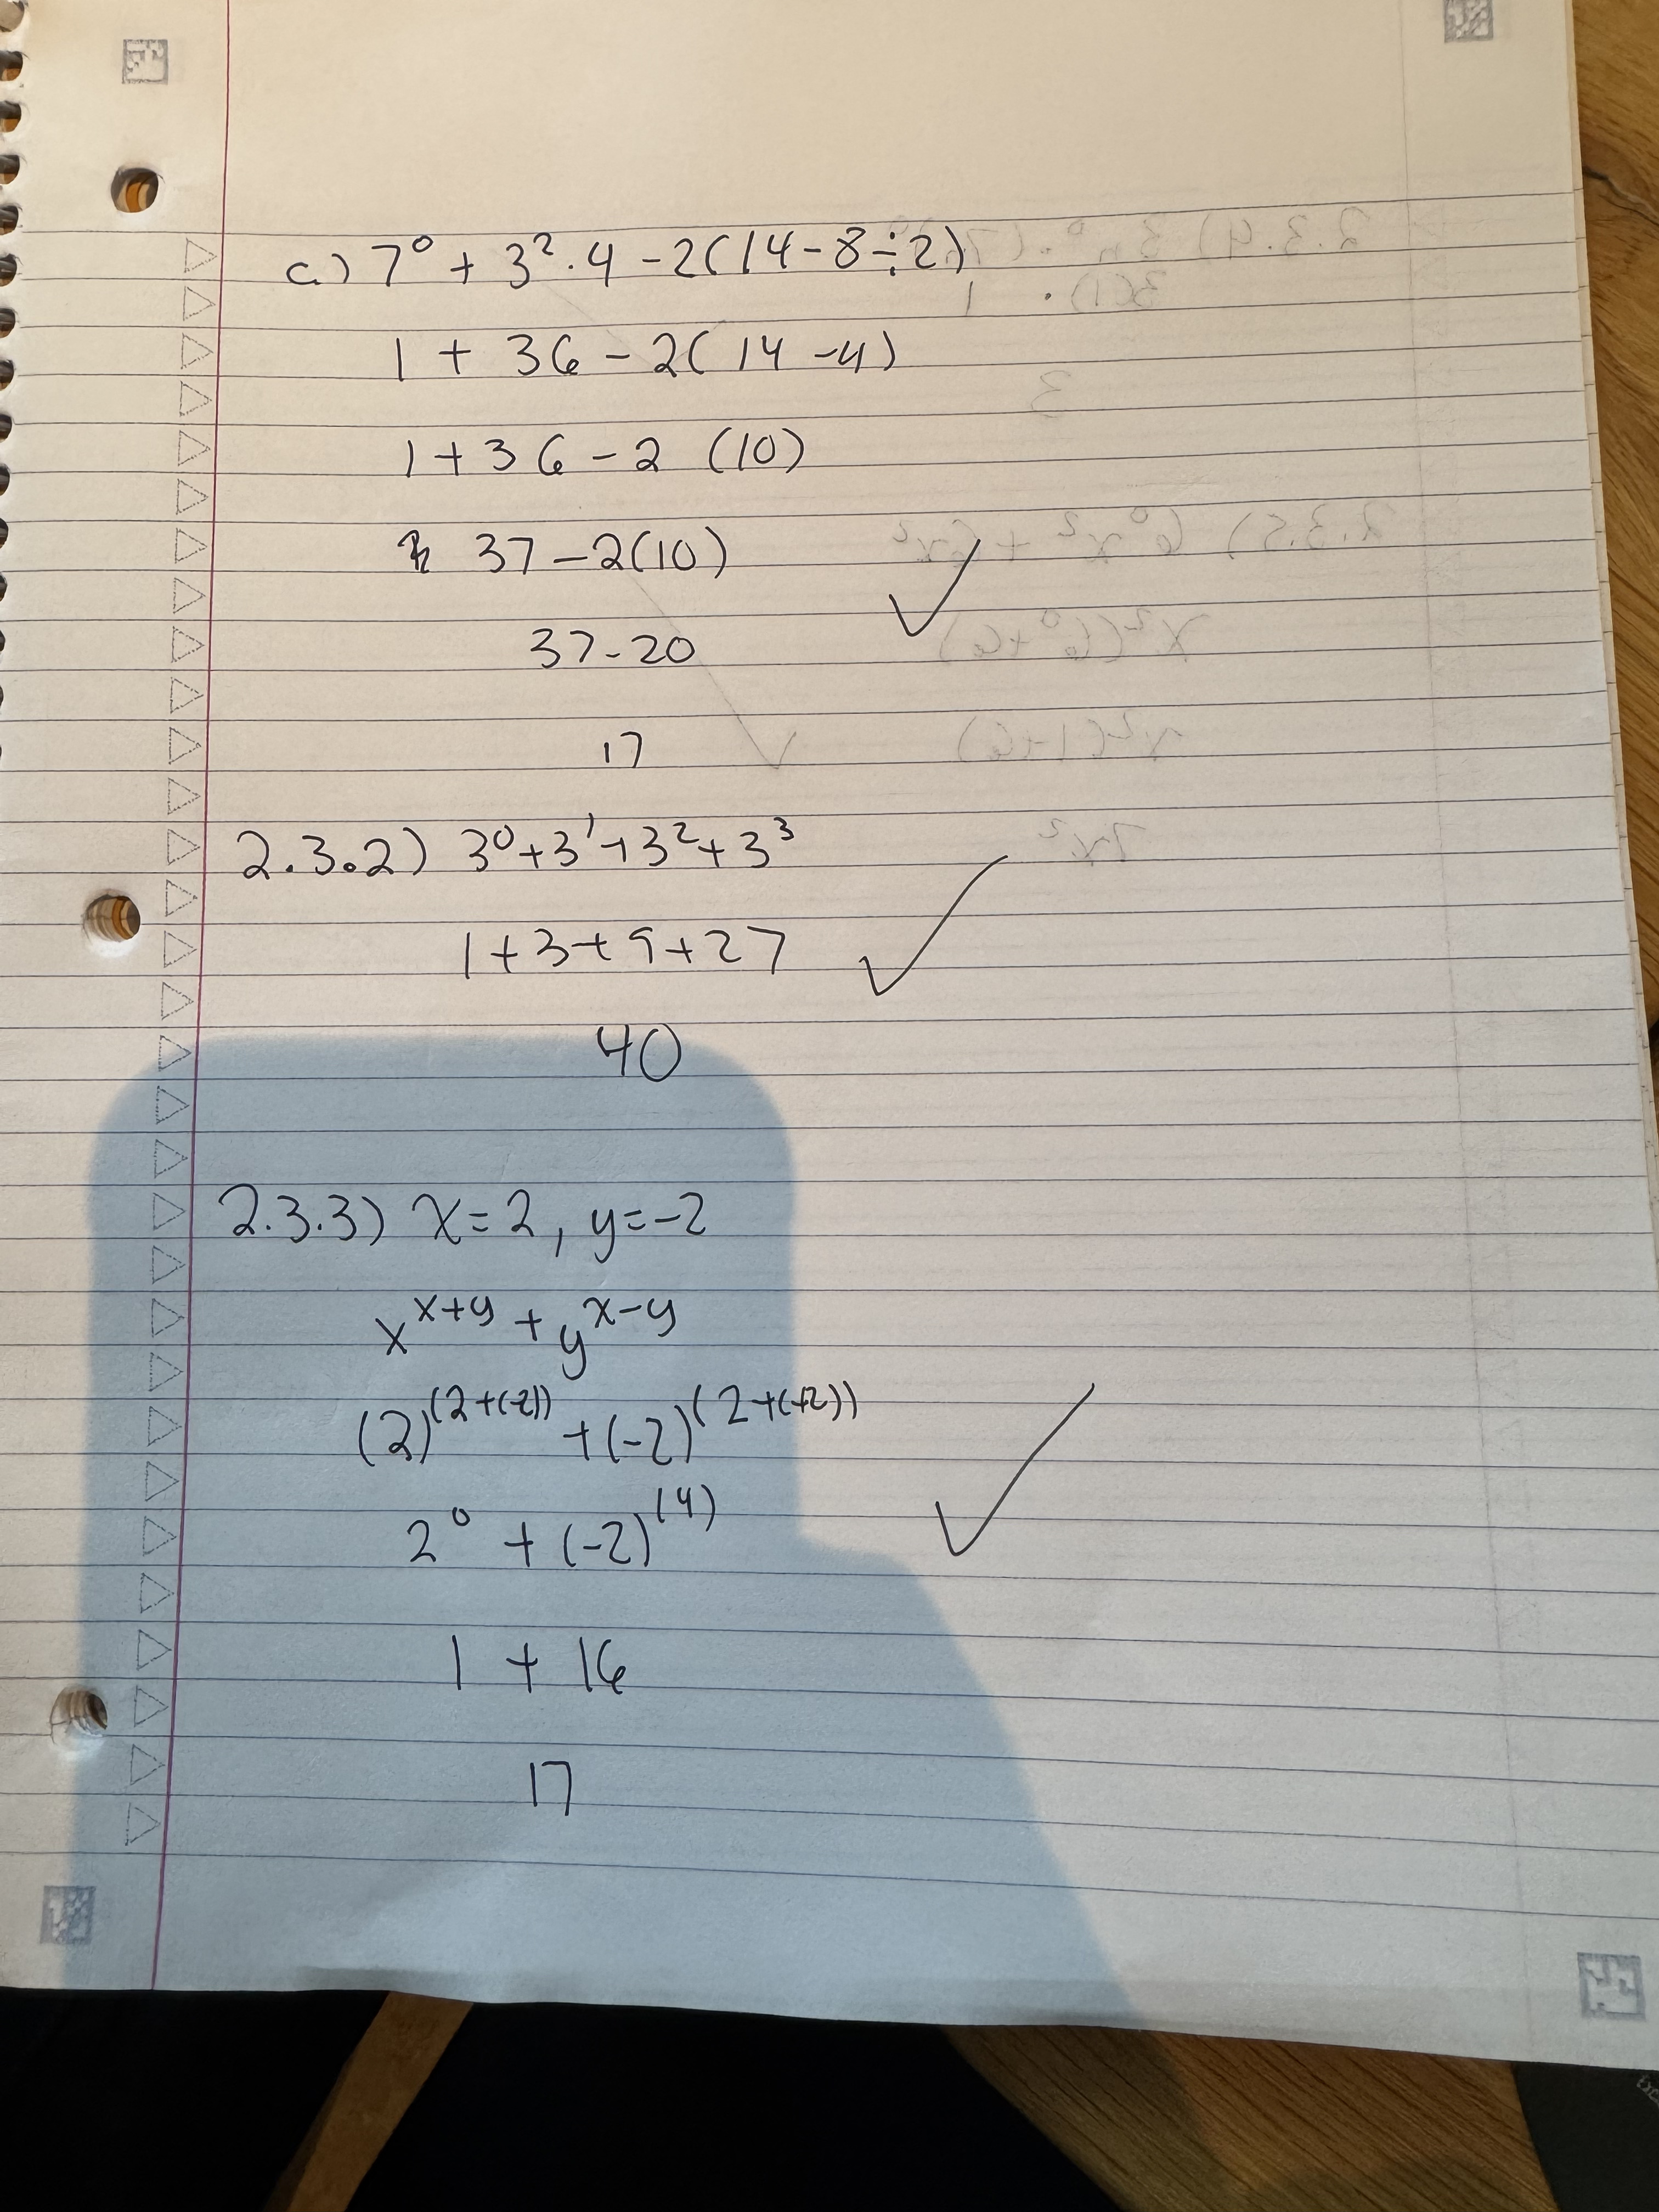 c.) 7⁰ + 3² · 4 - 2(14 - 8 ÷ 2)
1 + 36 - 2(14 - 4)
1 + 36 - 2 (10)
37 - 2(10)
37 - 20
17
2.3.2) 3⁰ + 3¹ + 3² + 3³
1 + 3 + 9 + 27
40
2.3.3) x = 2, y = -2
x^(x+y) + y^(x-y)
(2)^(2+(-2)) + (-2)^(2+(+2))
2⁰ + (-2)^(4)
1 + 16
17